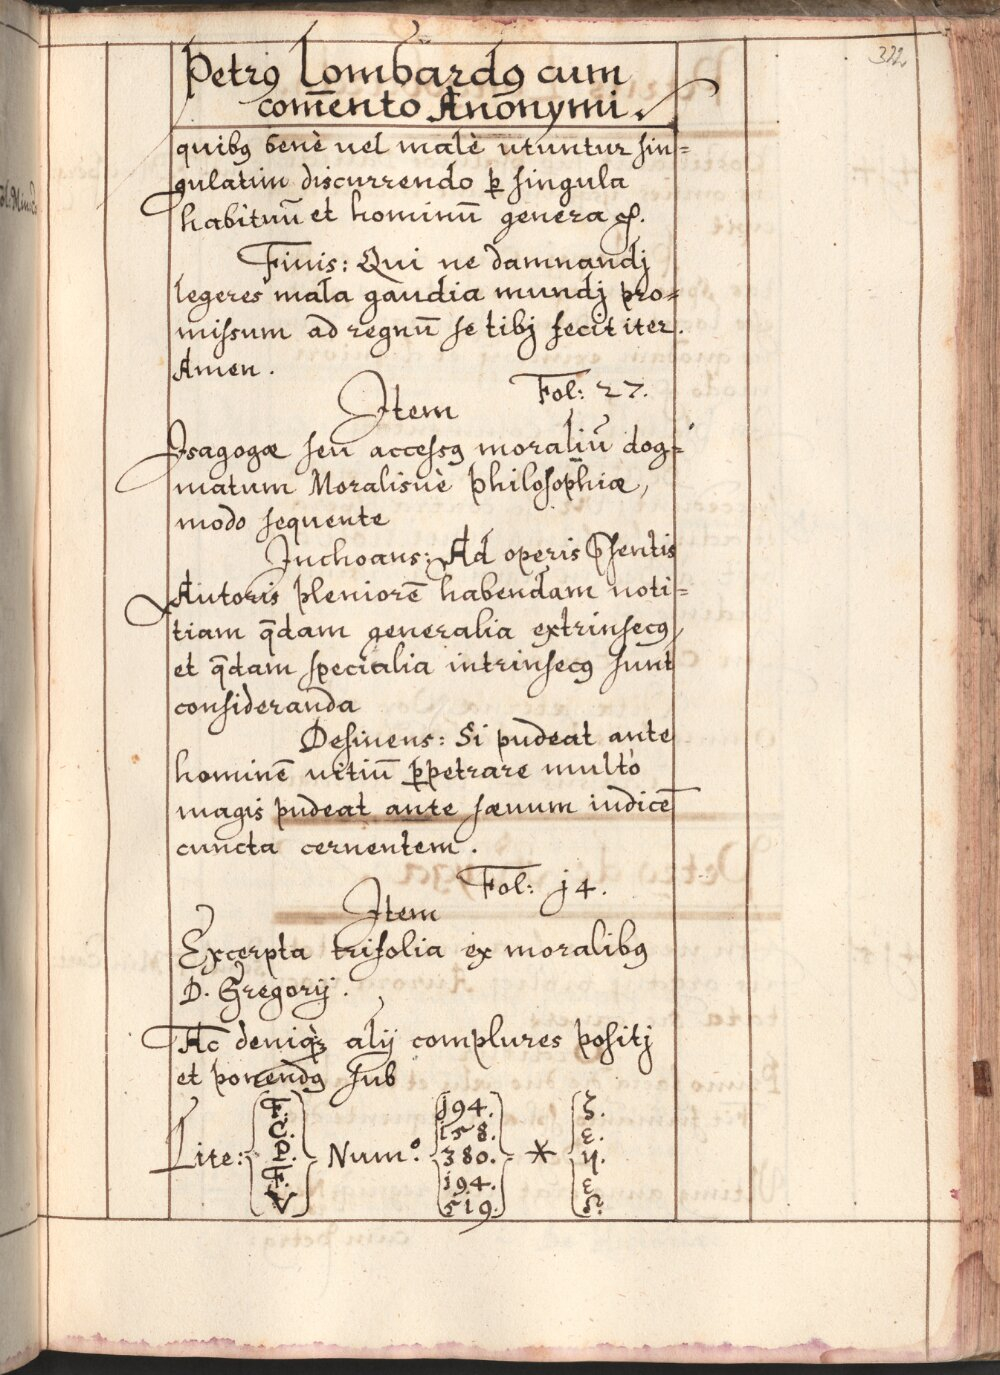 322
Petrꝰ Lombardꝰ cum
com̄ento Anonymi.
quibꝰ benè uel malè utuntur sin=
gulatim discurrendo ꝑ singula
habituū et hominū genera
Finis: Qui ne damnandj
legeres mala gaudia mundj pro=
missum ad regnū se tibj fecit iter.
Amen.
Fol: 27.
Item
Isagogæ seu accessꝰ moraliū dog=
matum Moralisuè philosophiæ,
modo sequente
Inchoans: Ad operis p̄sentis
Autoris pleniorē habendam noti=
tiam q̄dam generalia extrinsecꝰ,
et q̄dam specialia intrinsecꝰ sunt
consideranda
Desinens: Si pudeat ante
hominē uitiū ꝑpetrare multò
magis pudeat ante sæuum iudicē
cuncta cernentem.
Fol: j4.
Item
Excerpta trifolia ex moralibꝰ
D. Gregorij.
Ac deniqꝫ alij complures positj
et ponendꝰ sub
Lite: F. Num.º j94. * ζ.
C. 158. ε.
P. 380. η.
F. j94. ε
V 519. Ω.